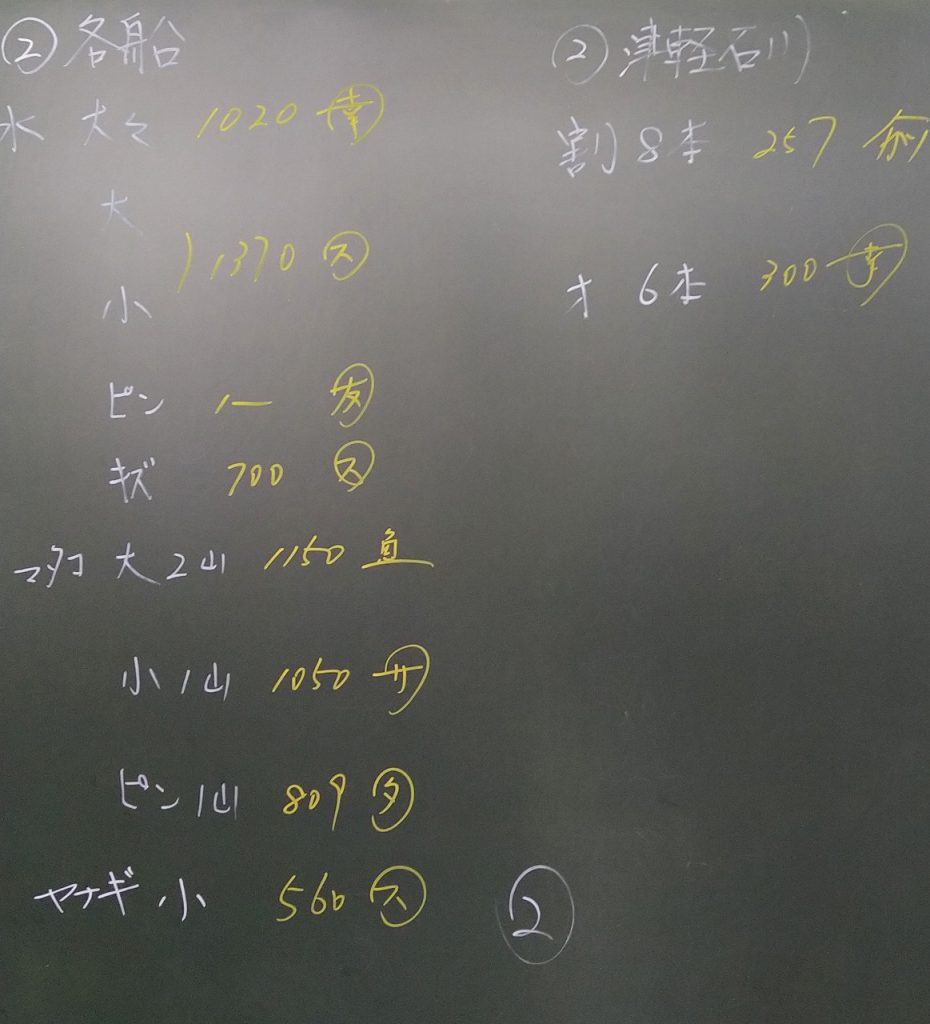 ② 各船
水 大々 1020 ㊍幸
大
) 1370 ス
小
ピン 1一 友
キズ 700 ス
マダコ 大 2山 1150 直
小 1山 1050 サ
ピン 1山 809 タ
ヤナギ 小 560 ス
②
② 津軽石川
割 8本 257
オ 6本 300 幸